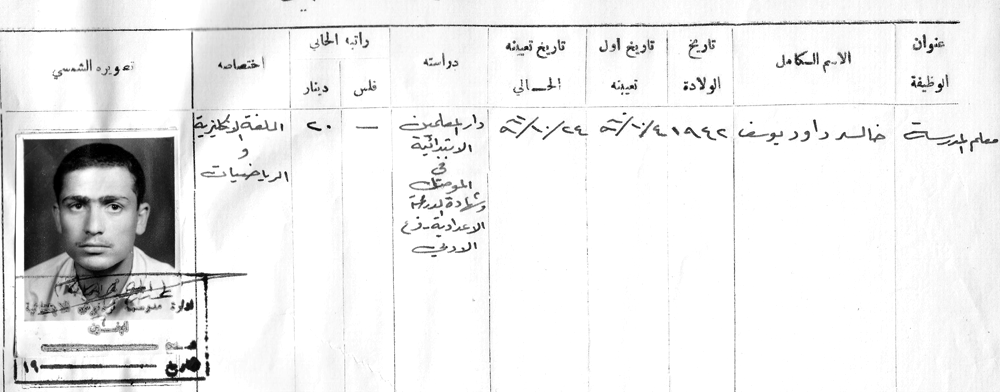 عنوان الوظيفة
الاسم الكامل
تاريخ الولادة
تاريخ اول تعيينه
تاريخ تعيينه الحالي
دراسته
راتبه الحالي
فلس
دينار
اختصاصه
تصويره الشمسي
معلم المدرسة
خالد داود يوسف
١٩٤٢
دار المعلمين
الابتدائية
في
الموصل
وشهادة الدراسة
الاعدادية - فرع
الادبي
—
٢٠
اللغة الانكليزية
و
الرياضيات
ادارة مدرسة
للبنين
تاريخ ١٩